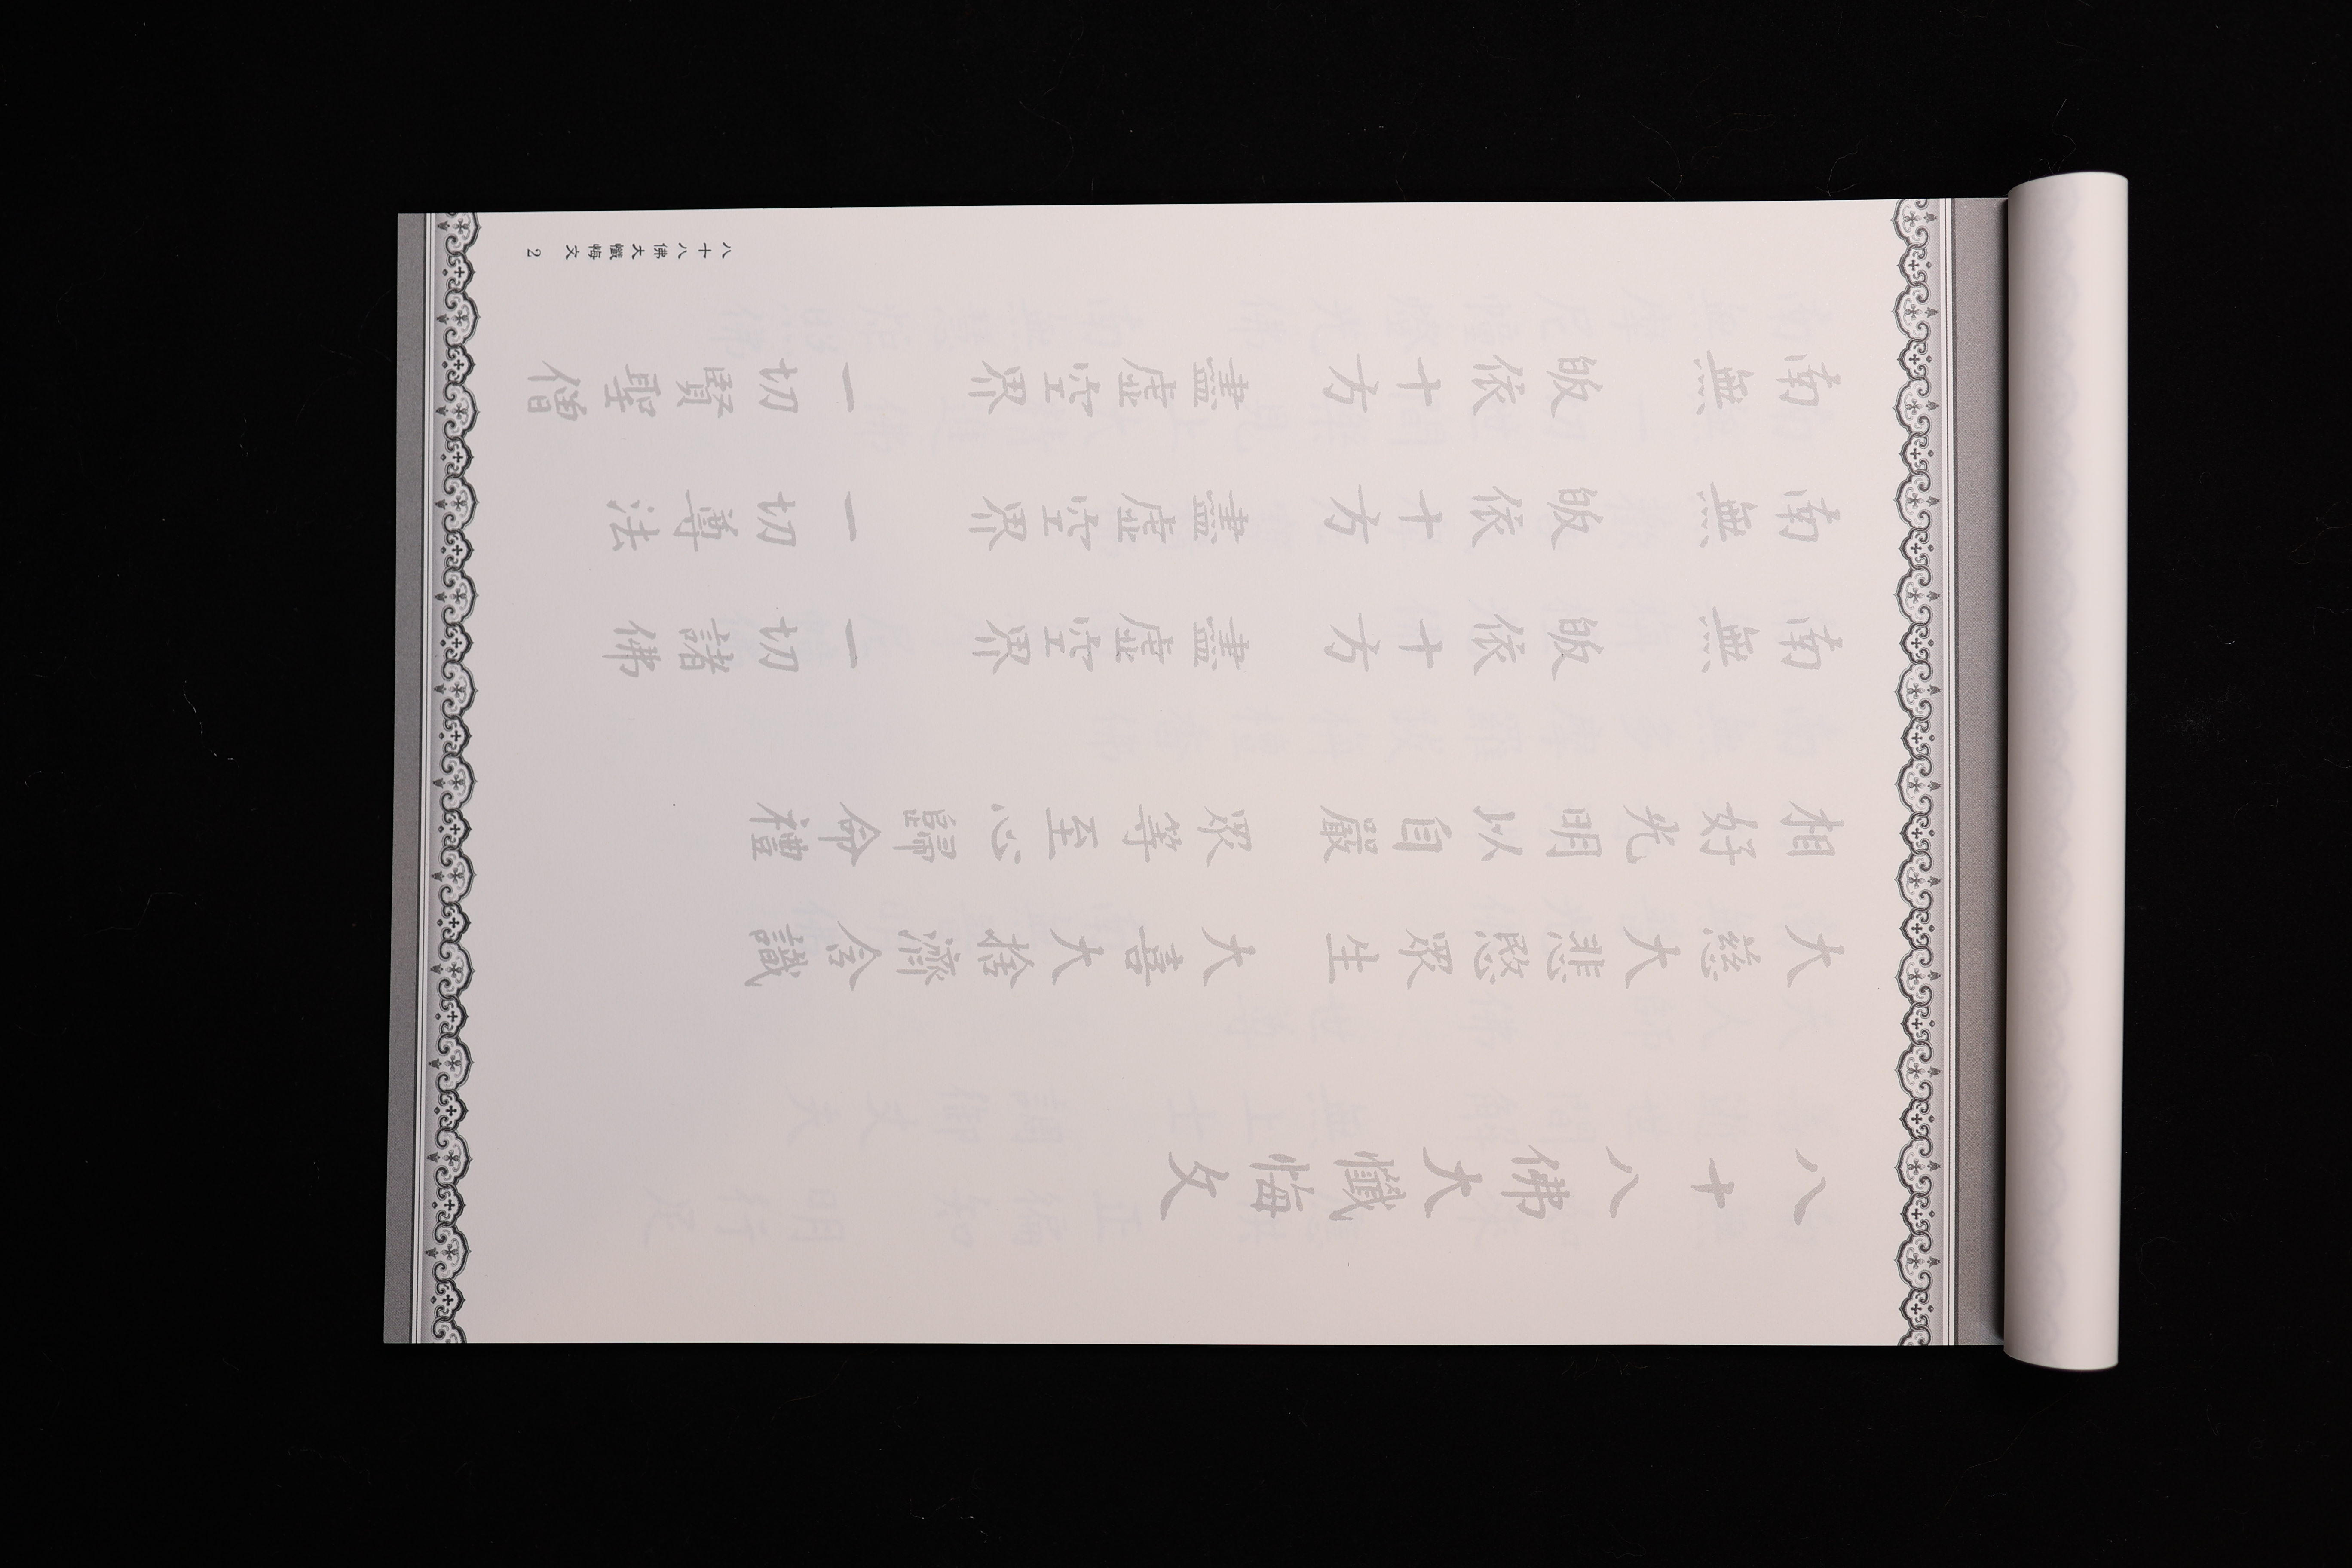 八十八佛大懺悔文
大慈大悲愍眾生　大喜大捨濟含識
相好光明以自嚴　眾等至心歸命禮
南無　皈依十方　盡虛空界　一切諸佛
南無　皈依十方　盡虛空界　一切尊法
南無　皈依十方　盡虛空界　一切賢聖僧
八十八佛大懺悔文　2